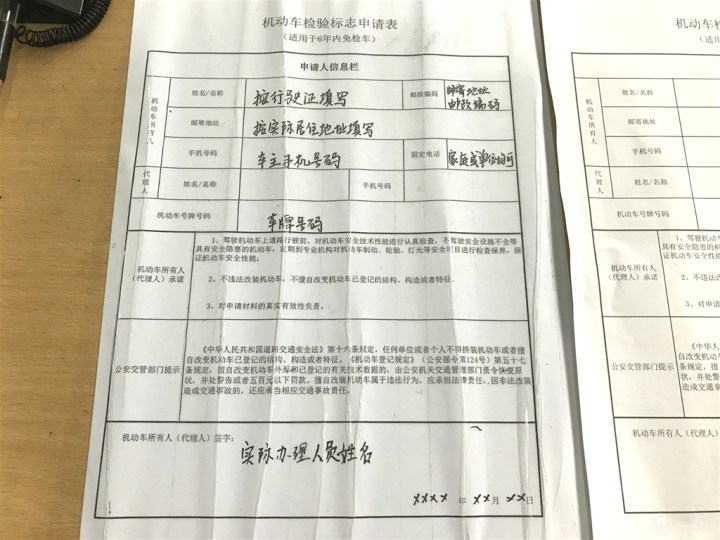 机动车检验标志申请表
（适用于6年内免检车）
申请人信息栏
机动车所有人
姓名/名称 按行驶证填写 邮政编码 邮寄地址
邮政编码
邮寄地址 按实际居住地址填写
手机号码 车主手机号码 固定电话 家庭或单位均可
代理人 姓名/名称 手机号码
机动车号牌号码 车牌号码
机动车所有人
（代理人）承诺
1、驾驶机动车上道路行驶前，对机动车安全技术性能进行认真检查，不驾驶安全设施不全等
具有安全隐患的机动车，定期到专业机构对机动车制动、轮胎、灯光等安全项目进行检查保养，保
证机动车安全性能；
2、不违法改装机动车，不擅自改变机动车已登记的结构、构造或者特征。
3、对申请材料的真实有效性负责。
公安交管部门提示
《中华人民共和国道路交通安全法》第十六条规定，任何单位或者个人不得拼装机动车或者擅
自改变机动车已登记的结构、构造或者特征。《机动车登记规定》（公安部令第124号）第五十七
条规定，擅自改变机动车外形和已登记的有关技术数据的，由公安机关交通管理部门责令恢复原
状，并处警告或者五百元以下罚款。擅自改装机动车属于违法行为，应承担法律责任，因非法改装
造成交通事故的，还应承当相应交通事故责任。
机动车所有人（代理人）签字：
实际办理人员姓名
xxxx 年 xx 月 xx 日
机动车检
（适用
机动车所有人
姓名/名称
邮寄地址
手机号码
代理人 姓名/名称
机动车号牌号码
机动车所有人
（代理人）承诺
1、驾驶机动车
具有安全隐患的机
证机动车安全性能
2、不违法改装
3、对申请材
公安交管部门提示
《中华人民共
自改变机动车已登
条规定，擅自改变
状，并处警告或者
造成交通事故的
机动车所有人（代